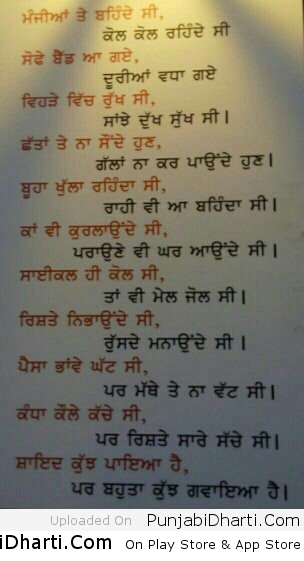 ਮੰਜੀਆਂ ਤੇ ਬਹਿੰਦੇ ਸੀ,
ਕੋਲ ਕੋਲ ਰਹਿੰਦੇ ਸੀ
ਸੋਫੇ ਬੈੱਡ ਆ ਗਏ,
ਦੂਰੀਆਂ ਵਧਾ ਗਏ
ਵਿਹੜੇ ਵਿੱਚ ਰੁੱਖ ਸੀ,
ਸਾਂਝੇ ਦੁੱਖ ਸੁੱਖ ਸੀ।
ਛੱਤਾਂ ਤੇ ਨਾ ਸੌਂਦੇ ਹੁਣ,
ਗੱਲਾਂ ਨਾ ਕਰ ਪਾਉਂਦੇ ਹੁਣ।
ਬੂਹਾ ਖੁੱਲਾ ਰਹਿੰਦਾ ਸੀ,
ਰਾਹੀ ਵੀ ਆ ਬਹਿੰਦਾ ਸੀ।
ਕਾਂ ਵੀ ਕੁਰਲਾਉਂਦੇ ਸੀ,
ਪਰਾਉਣੇ ਵੀ ਘਰ ਆਉਂਦੇ ਸੀ।
ਸਾਈਕਲ ਹੀ ਕੋਲ ਸੀ,
ਤਾਂ ਵੀ ਮੇਲ ਜੋਲ ਸੀ।
ਰਿਸ਼ਤੇ ਨਿਭਾਉਂਦੇ ਸੀ,
ਰੁੱਸਦੇ ਮਨਾਉਂਦੇ ਸੀ।
ਪੈਸਾ ਭਾਂਵੇ ਘੱਟ ਸੀ,
ਪਰ ਮੱਥੇ ਤੇ ਨਾ ਵੱਟ ਸੀ।
ਕੰਧਾ ਕੌਲੇ ਕੱਚੇ ਸੀ,
ਪਰ ਰਿਸ਼ਤੇ ਸਾਰੇ ਸੱਚੇ ਸੀ।
ਸ਼ਾਇਦ ਕੁੱਝ ਪਾਇਆ ਹੈ,
ਪਰ ਬਹੁਤਾ ਕੁੱਝ ਗਵਾਇਆ ਹੈ।
Uploaded On PunjabiDharti.Com
iDharti.Com On Play Store & App Store